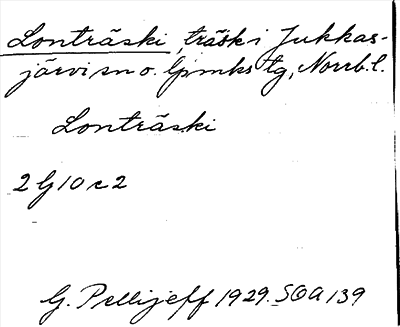 Lonträski, träsk i Jukkas-
järvi sn o. lpmks tg, Norrb. l.
Lonträski
2 G 10 c 2
G. Pellijeff 1929. SOA 139